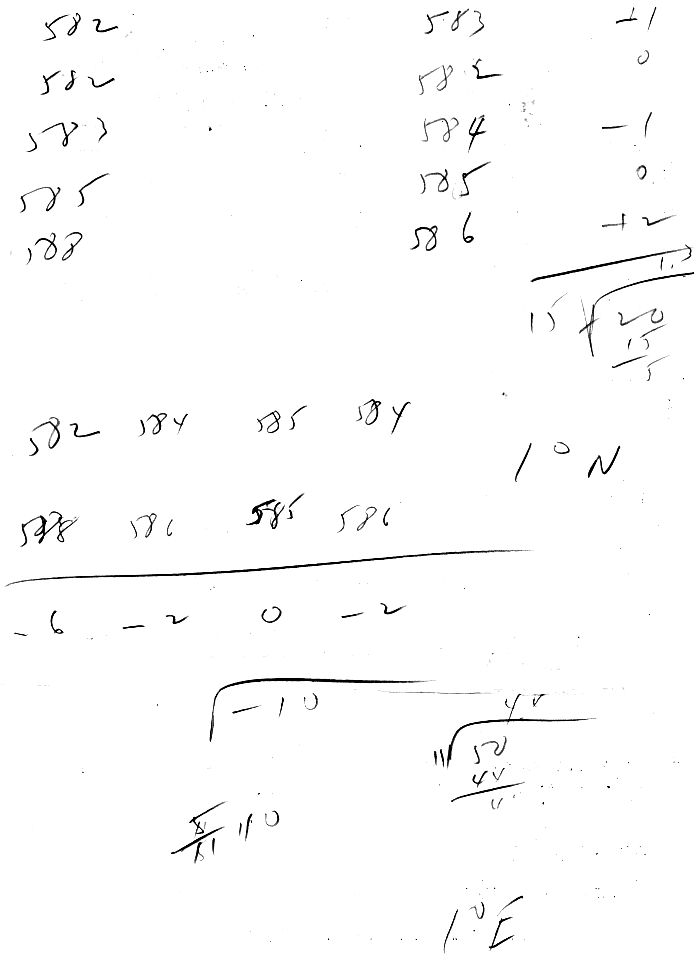 582 583 +1
582 585 0
583 584 -1
585 585 0
588 586 +2
1.3
15 20
15
5
582 584 585 584
1° N
588 586 585 586
-6 -2 0 -2
-10
50
110
1° E